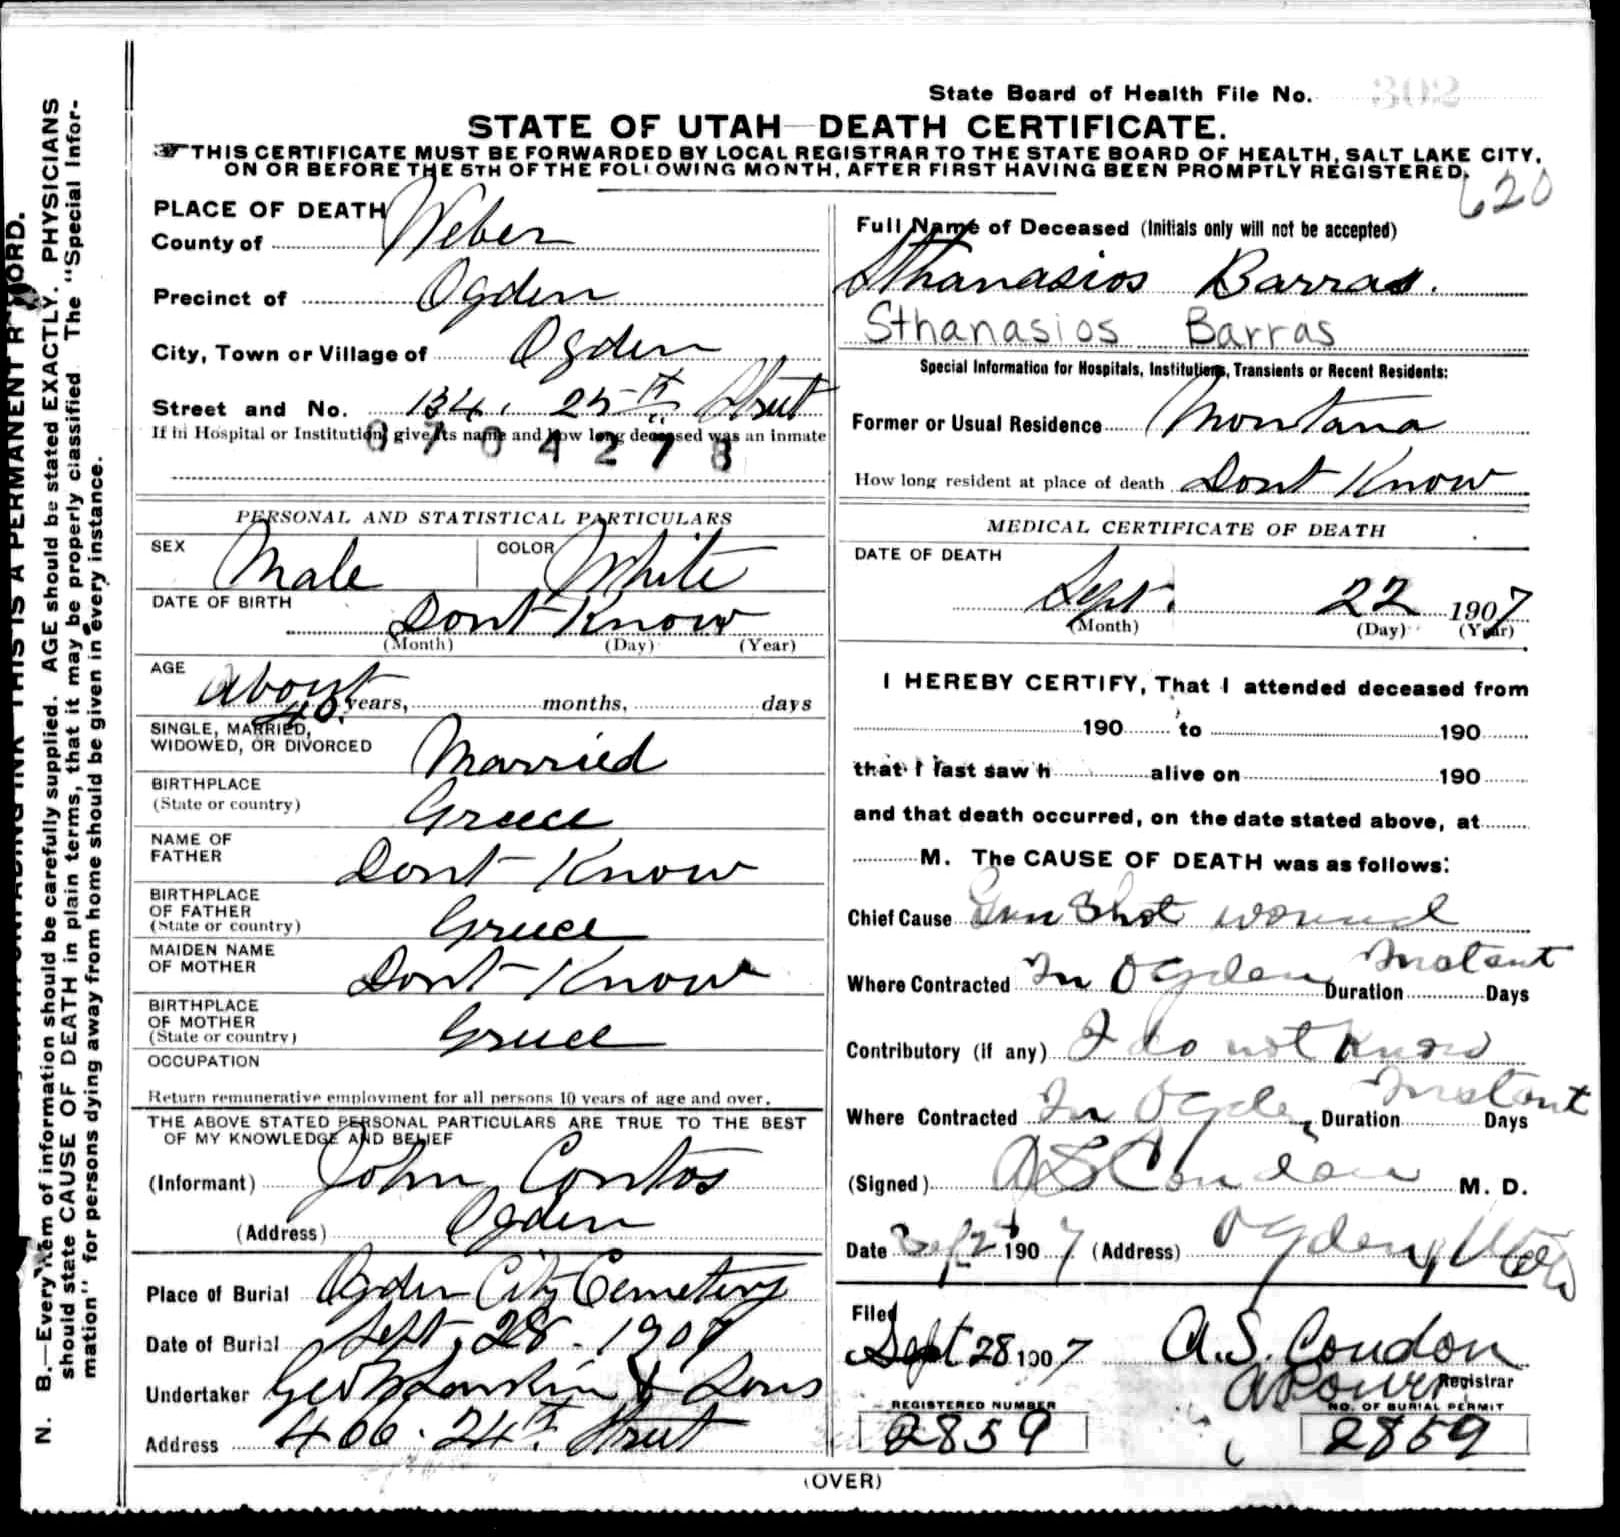 State Board of Health File No. 302
STATE OF UTAH—DEATH CERTIFICATE.
THIS CERTIFICATE MUST BE FORWARDED BY LOCAL REGISTRAR TO THE STATE BOARD OF HEALTH, SALT LAKE CITY,
ON OR BEFORE THE 5TH OF THE FOLLOWING MONTH, AFTER FIRST HAVING BEEN PROMPTLY REGISTERED.
620
PLACE OF DEATH
County of Weber
Precinct of Ogden
City, Town or Village of Ogden
Street and No. 134. 25th Street
If in Hospital or Institution, give its name and how long deceased was an inmate
0704278
PERSONAL AND STATISTICAL PARTICULARS
SEX Male COLOR White
DATE OF BIRTH Dont Know
(Month) (Day) (Year)
AGE About 40. years, months, days
SINGLE, MARRIED,
WIDOWED, OR DIVORCED Married
BIRTHPLACE
(State or country) Greece
NAME OF
FATHER Dont Know
BIRTHPLACE
OF FATHER
(State or country) Greece
MAIDEN NAME
OF MOTHER Dont Know
BIRTHPLACE
OF MOTHER
(State or country) Greece
OCCUPATION
Return remunerative employment for all persons 10 years of age and over.
THE ABOVE STATED PERSONAL PARTICULARS ARE TRUE TO THE BEST
OF MY KNOWLEDGE AND BELIEF
(Informant) John Contos
(Address) Ogden
Place of Burial Ogden City Cemetery
Date of Burial Sept. 28 - 1907
Undertaker Geo W Larkin & Sons
Address 406. 24th Street
Full Name of Deceased (Initials only will not be accepted)
Sthanasios Barras.
Sthanasios Barras
Special Information for Hospitals, Institutions, Transients or Recent Residents:
Former or Usual Residence Montana
How long resident at place of death Dont Know
MEDICAL CERTIFICATE OF DEATH
DATE OF DEATH
Sept. 22 1907
(Month) (Day) (Year)
I HEREBY CERTIFY, That I attended deceased from
190 to 190
that I last saw h alive on 190
and that death occurred, on the date stated above, at
M. The CAUSE OF DEATH was as follows:
Chief Cause Gun Shot wound
Where Contracted In Ogden Duration Instant Days
Contributory (if any) I do not Know
Where Contracted In Ogden Duration Instant Days
(Signed) A S Condon M. D.
Date Sept 1907 (Address) Ogden, Utah
Filed
Sept 28 1907 A. S. Condon
Registrar
REGISTERED NUMBER
2859
NO. OF BURIAL PERMIT
2859
(OVER)
THIS IS A PERMANENT RECORD.
N. B.—Every item of information should be carefully supplied. AGE should be stated EXACTLY. PHYSICIANS
should state CAUSE OF DEATH in plain terms, that it may be properly classified. The "Special Infor-
mation" for persons dying away from home should be given in every instance.